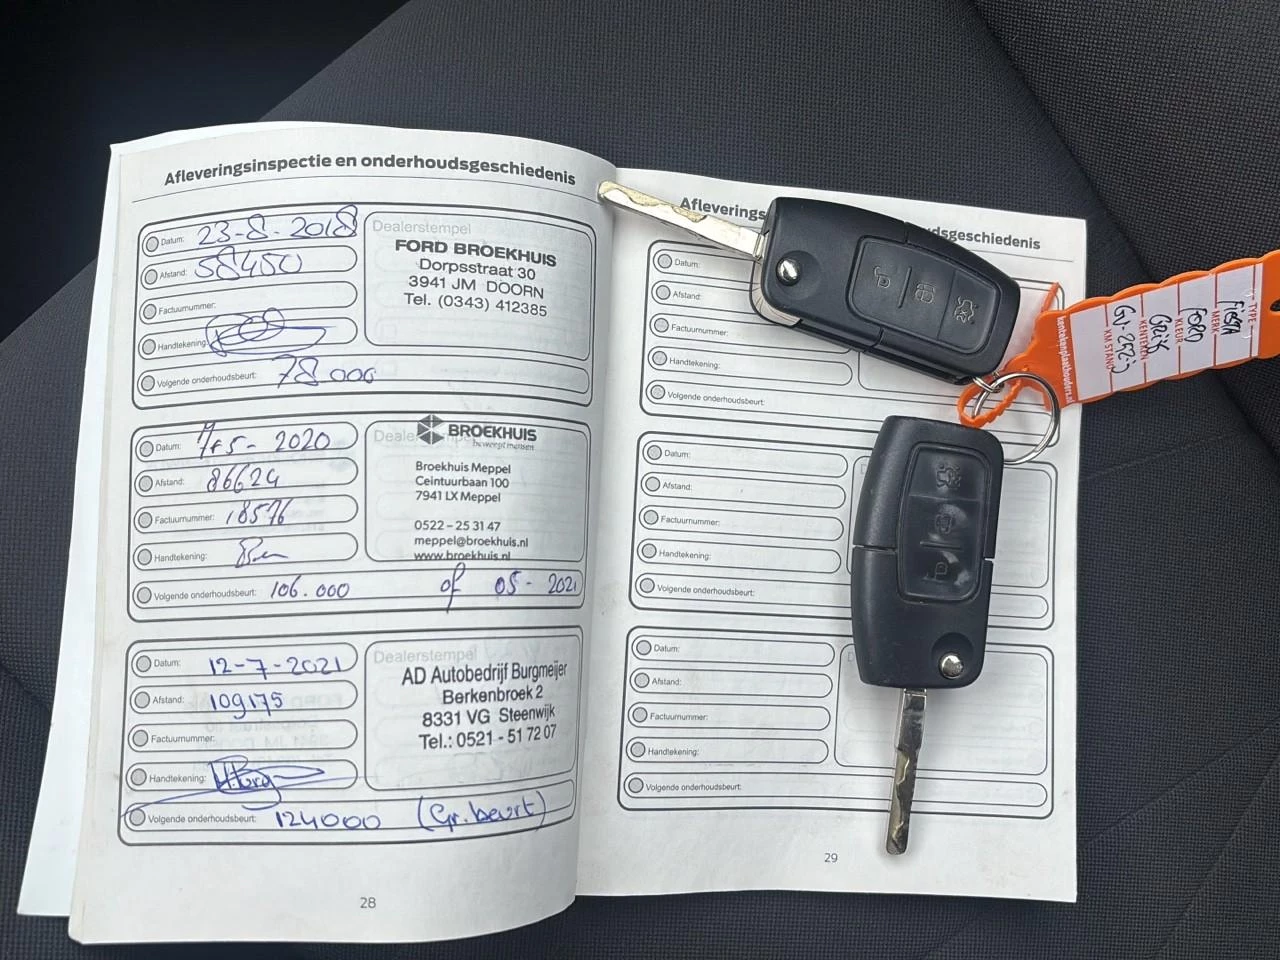 Afleveringsinspectie en onderhoudsgeschiedenis
Datum: 23-8-2018
Afstand: 58450
Factuurnummer:
Handtekening:
Volgende onderhoudsbeurt: 78000
Dealerstempel
FORD BROEKHUIS
Dorpsstraat 30
3941 JM DOORN
Tel. (0343) 412385
Datum: 5- 2020
Afstand: 86624
Factuurnummer: 18576
Handtekening:
Volgende onderhoudsbeurt: 106.000 of 05-2021
BROEKHUIS
beweegt mensen
Broekhuis Meppel
Ceintuurbaan 100
7941 LX Meppel
0522 - 25 31 47
meppel@broekhuis.nl
www.broekhuis.nl
Datum: 12-7-2021
Afstand: 109175
Factuurnummer:
Handtekening:
Volgende onderhoudsbeurt: 124000 (Gr. beurt)
Dealerstempel
AD Autobedrijf Burgmeijer
Berkenbroek 2
8331 VG Steenwijk
Tel.: 0521 - 51 72 07
28
Afleverings dsgeschiedenis
Datum:
Afstand:
Factuurnummer:
Handtekening:
Volgende onderhoudsbeurt:
Datum:
Afstand:
Factuurnummer:
Handtekening:
Volgende onderhoudsbeurt:
Datum:
Afstand:
Factuurnummer:
Handtekening:
Volgende onderhoudsbeurt:
29
2x
TYPE
MERK
Ford
KLEUR
Grijs
KENTEKEN
KM STAND
kentekenplaathouders.nl